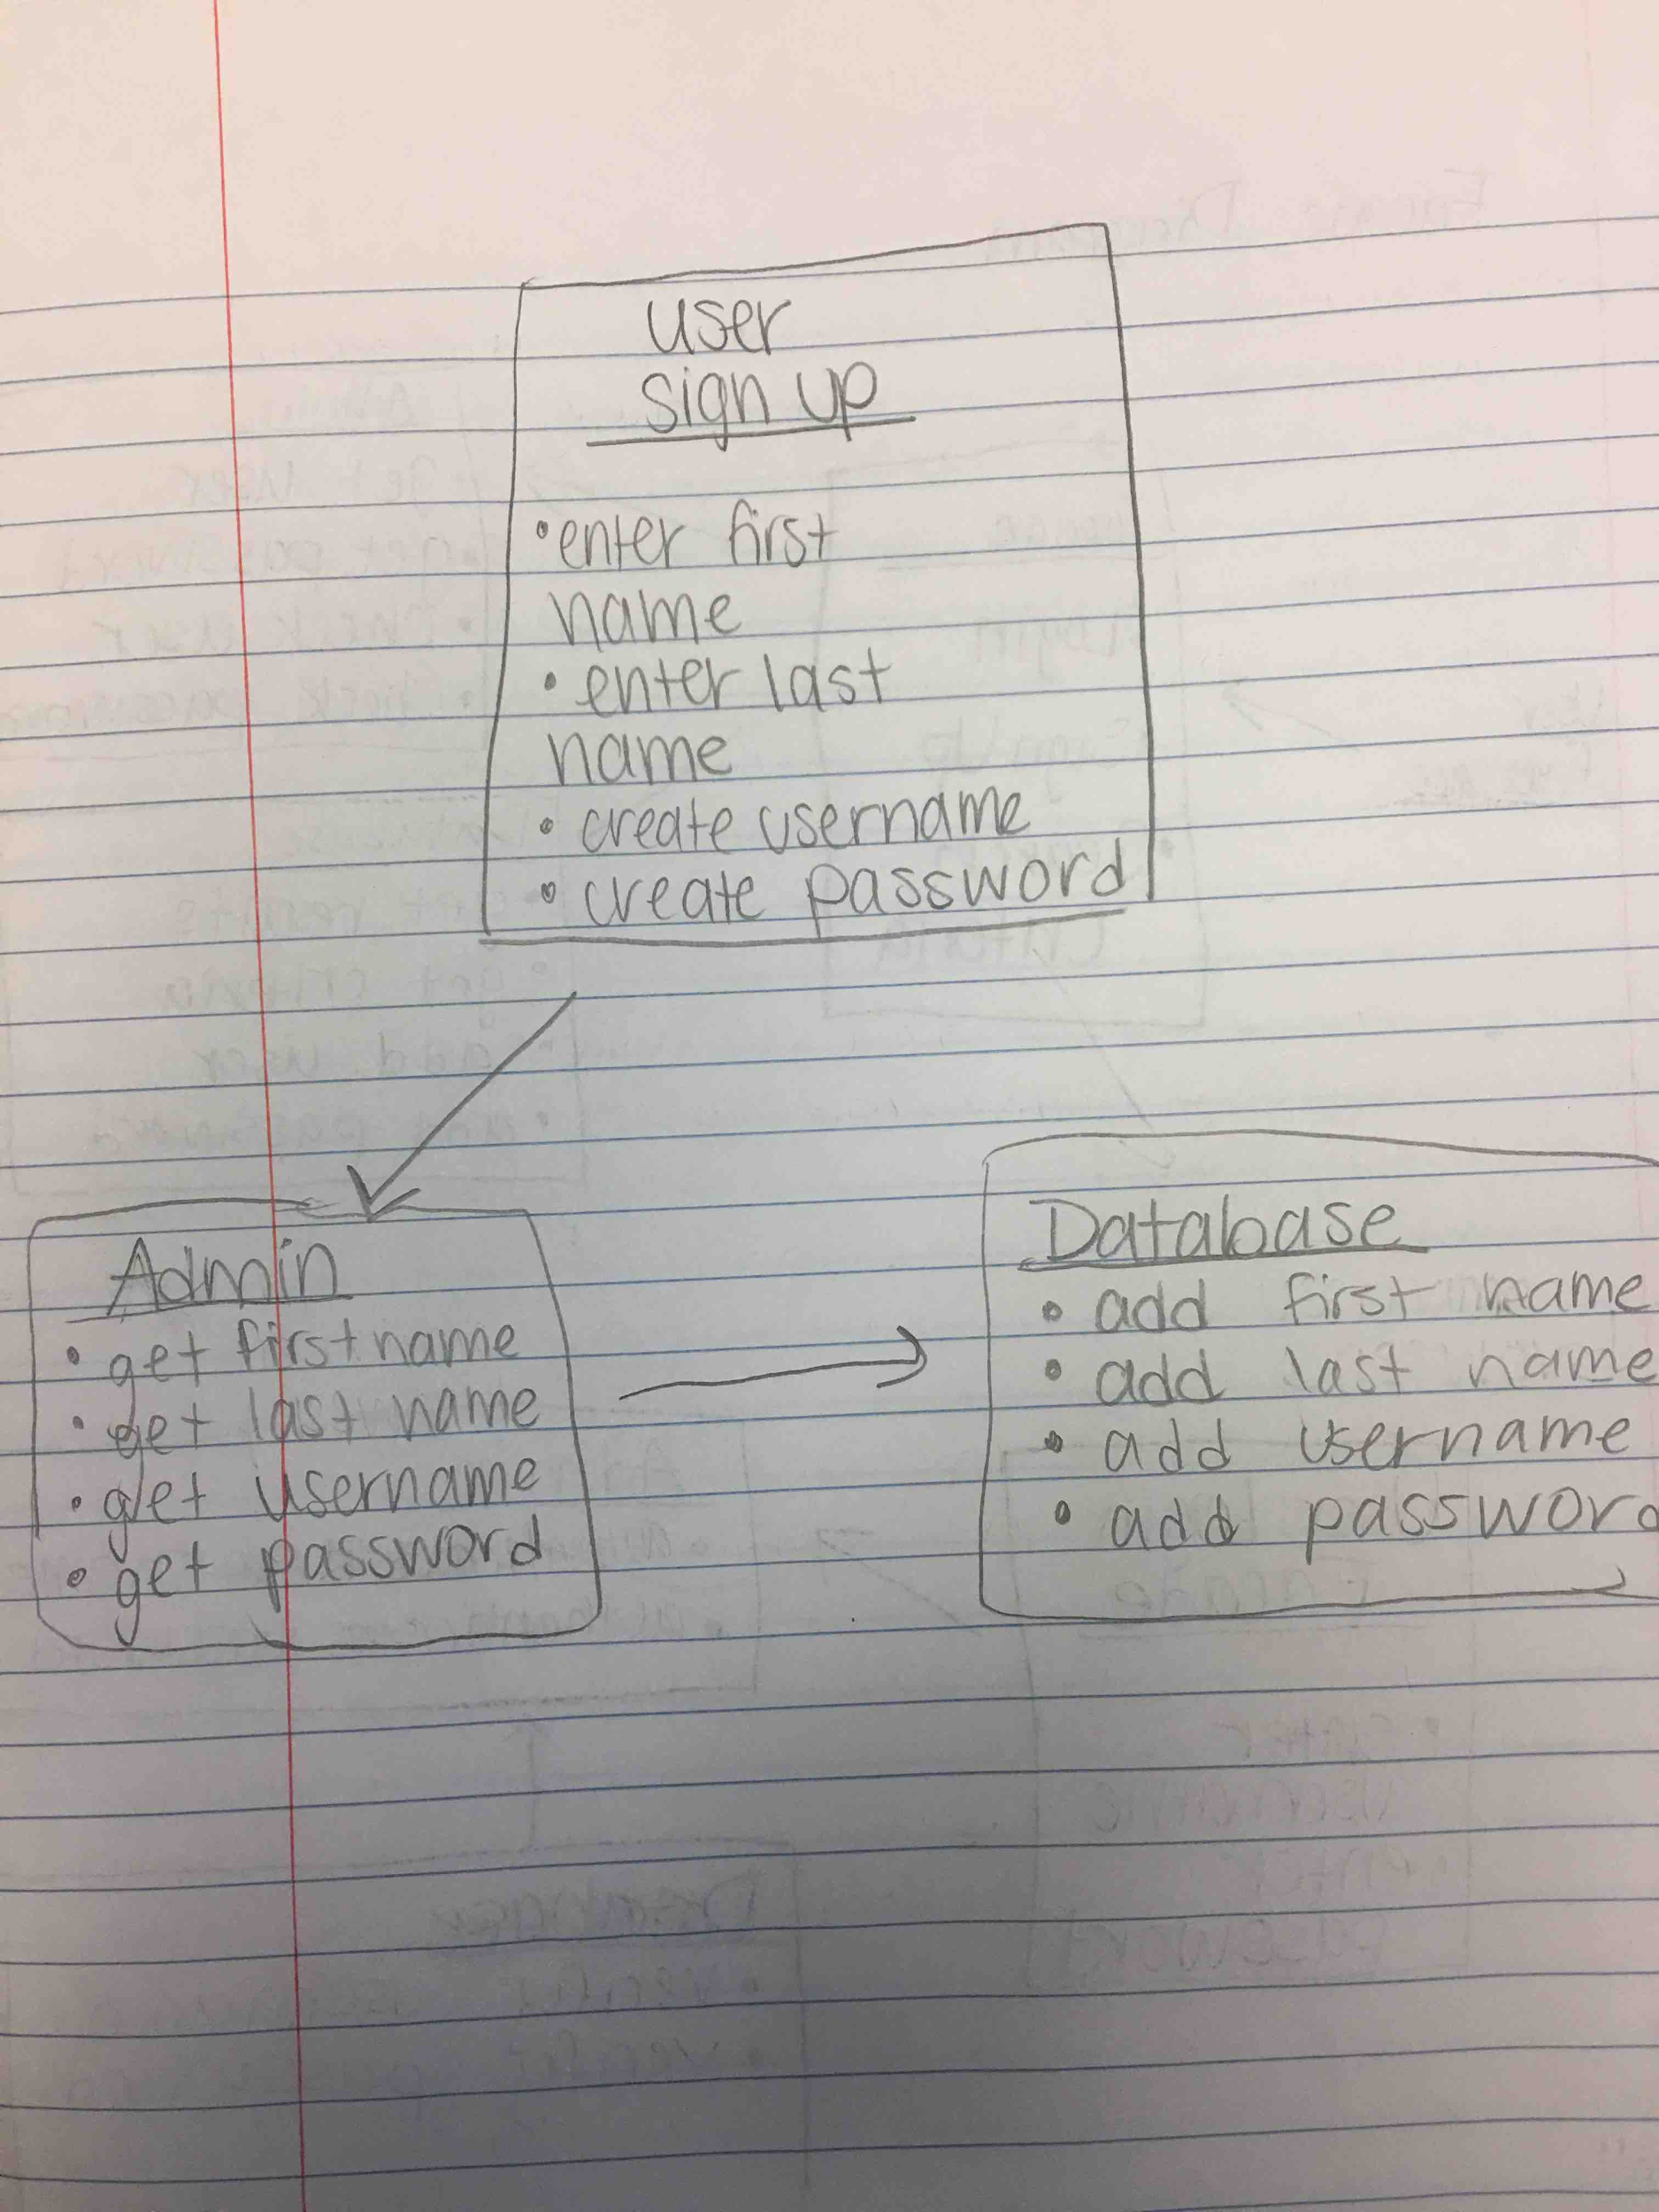 user
sign up
• enter first
name
• enter last
name
• create username
• create password
Admin
• get first name
• get last name
• get username
• get password
Database
• add first name
• add last name
• add username
• add password